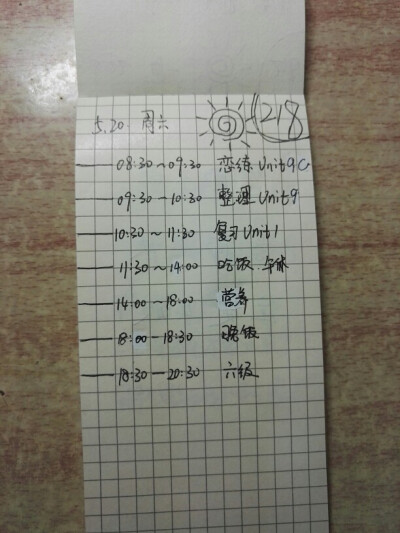 5.20. 周六 218
08:30~09:30 恋练 Unit9C
09:30~10:30 整理 Unit9
10:30~11:30 复习 Unit1
11:30~14:00 吃饭 午休
14:00~18:00 营养
18:00-18:30 晚饭
18:30-20:30 六级